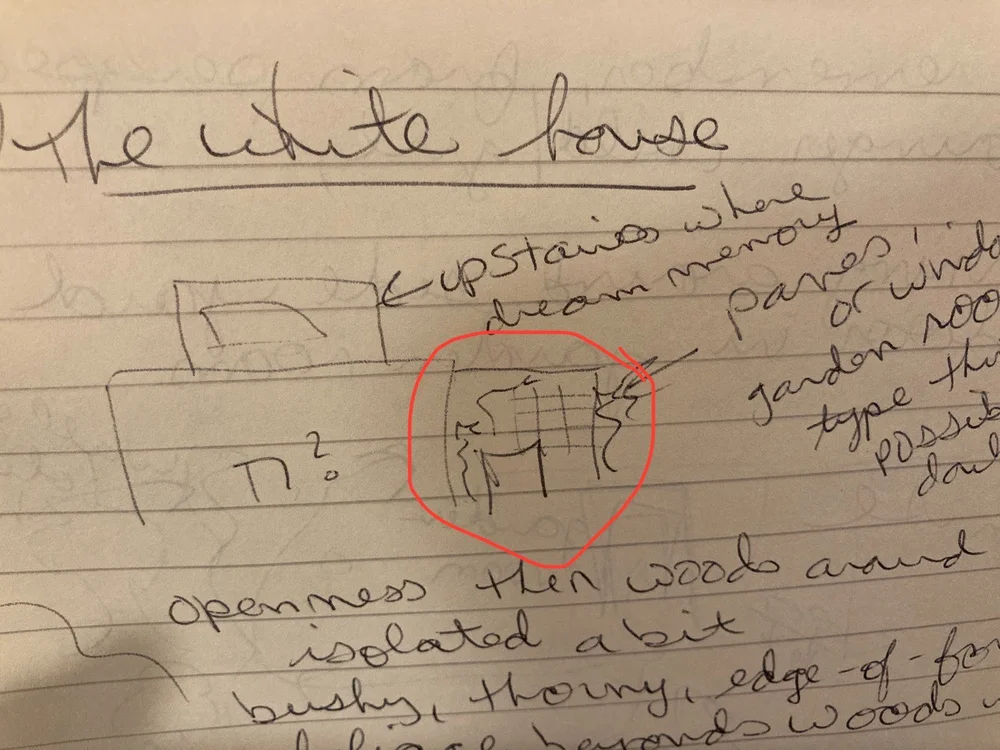 The white house
upstairs where
dream memory
panes,
or windo
garden roo
type thi
possib
π?
openness then woods around
isolated a bit
bushy, thorny, edge-of-for
beyonds woods